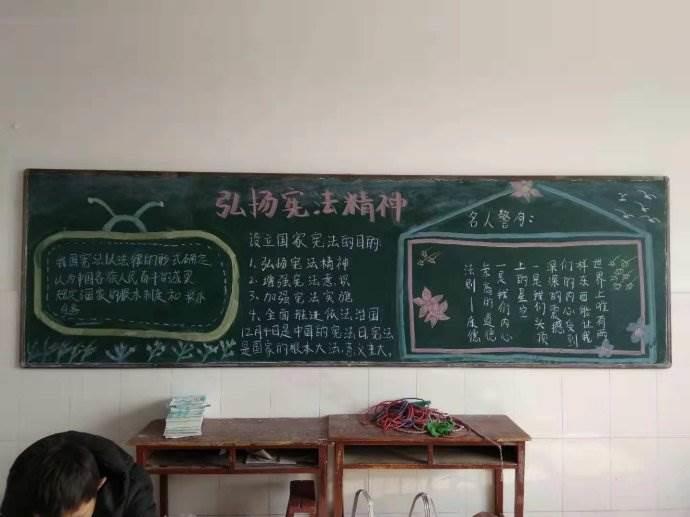 弘扬宪法精神
我国宪法以法律的形式确定
认为中国各族人民奋斗的成果
规定了国家的根本制度和根本
任务
设立国家宪法的目的:
1、弘扬宪法精神
2、增强宪法意识
3、加强宪法实施
4、全面推进依法治国
12月4日是中国的宪法日宪法
是国家的根本大法,意义重大。
名人警句:
世界上唯有两
样东西能让我
们的内心受到
深深的震撼
一是我们头顶
上的星空
一是我们内心
崇高的道德
法则—康德